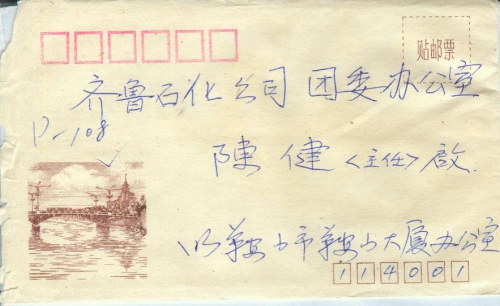 贴邮票
齐鲁石化公司 团委办公室
D-108
陳健<主任>啟
鞍山市鞍山大厦办公室
114001